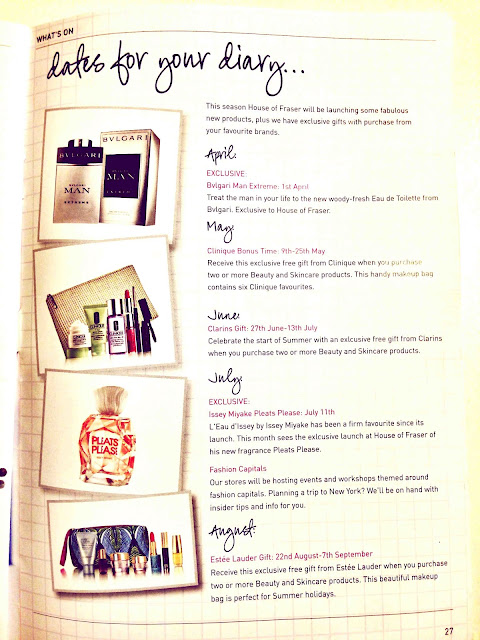 WHAT'S ON
dates for your diary...
This season House of Fraser will be launching some fabulous
new products, plus we have exclusive gifts with purchase from
your favourite brands.
April:
EXCLUSIVE:
Bvlgari Man Extreme: 1st April
Treat the man in your life to the new woody-fresh Eau de Toilette from
Bvlgari. Exclusive to House of Fraser.
May:
Clinique Bonus Time: 9th-25th May
Receive this exclusive free gift from Clinique when you purchase
two or more Beauty and Skincare products. This handy makeup bag
contains six Clinique favourites.
June:
Clarins Gift: 27th June-13th July
Celebrate the start of Summer with an exlcusive free gift from Clarins
when you purchase two or more Beauty and Skincare products.
July:
EXCLUSIVE:
Issey Miyake Pleats Please: July 11th
L'Eau d'Issey by Issey Miyake has been a firm favourite since its
launch. This month sees the exlcusive launch at House of Fraser of
his new fragrance Pleats Please.
Fashion Capitals
Our stores will be hosting events and workshops themed around
fashion capitals. Planning a trip to New York? We'll be on hand with
insider tips and info for you.
August:
Estée Lauder Gift: 22nd August-7th September
Receive this exclusive free gift from Estée Lauder when you purchase
two or more Beauty and Skincare products. This beautiful makeup
bag is perfect for Summer holidays.
BVLGARI
MAN
EXTREME
BVLGARI
MAN
EXTREME
CLINIQUE
PLEATS
PLEASE
27